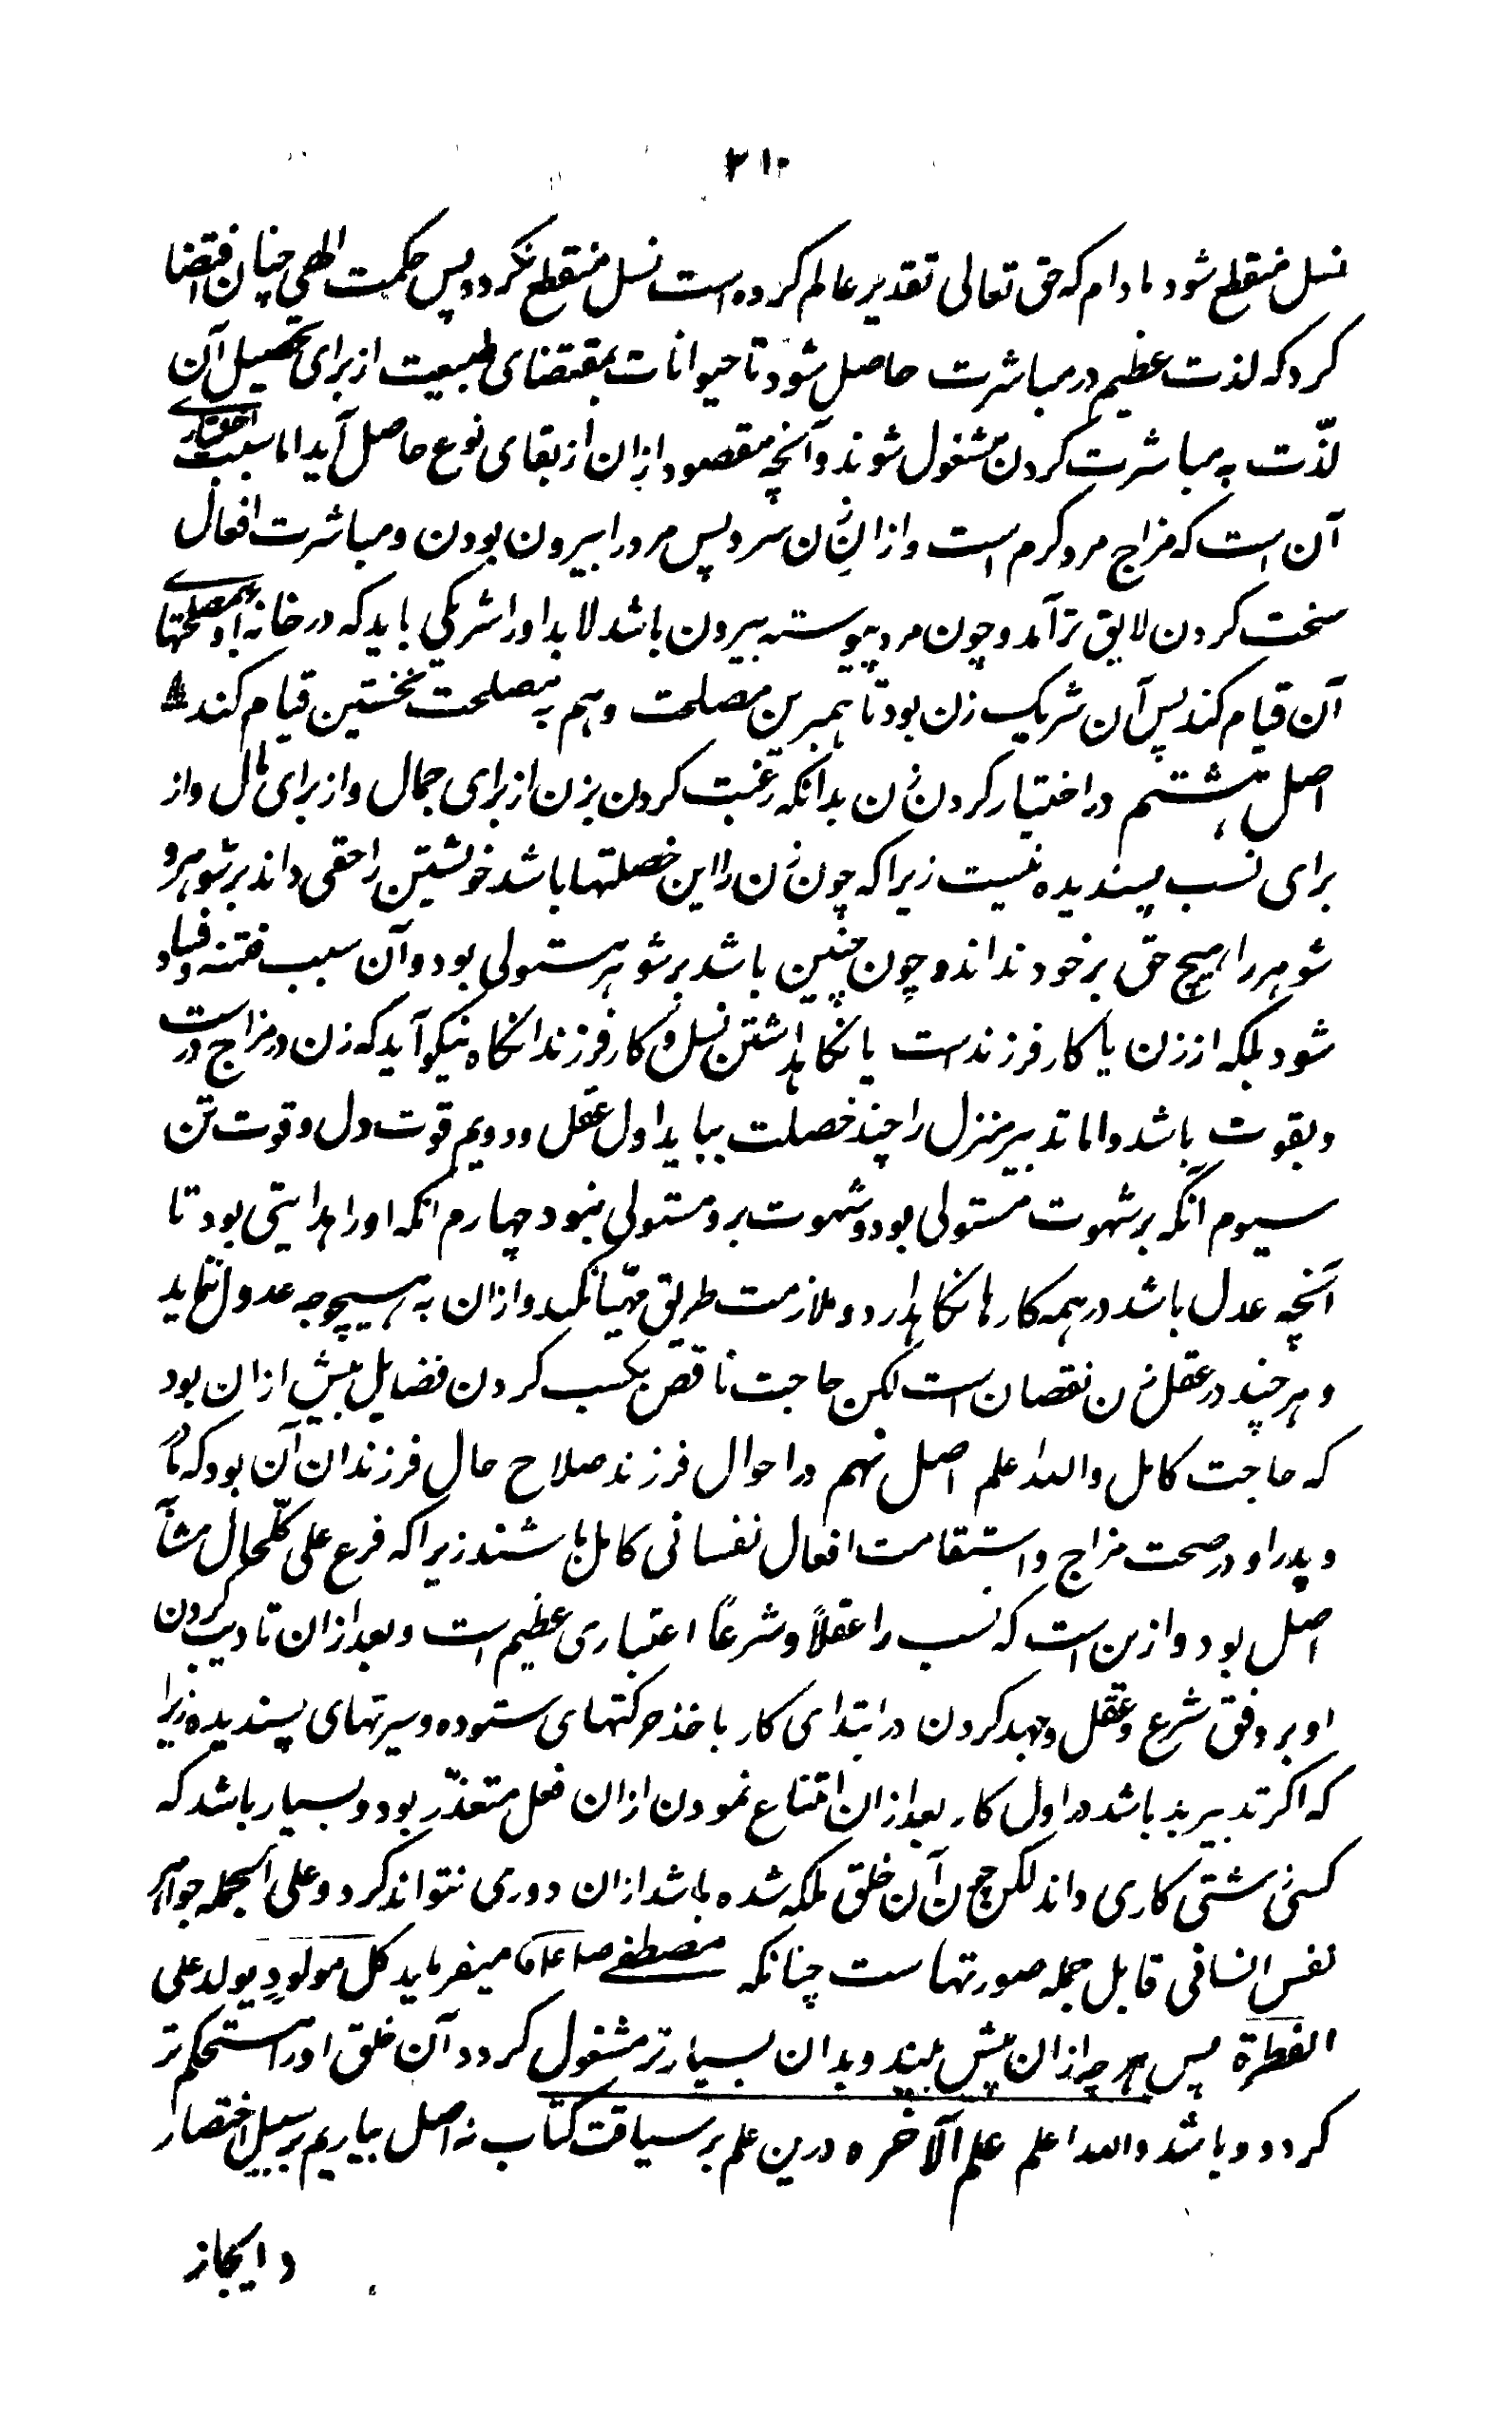 ۲۱۰
نسل منقطع شود مادام که حق تعالی تقدیر عالم کرده است نسل منقطع نکردد پس حکمت الهی چنان اقتضا
کرد که لذت عظیم در مباشرت حاصل شود تا حیوانات بمقتضای طبیعت از برای تحصیل آن
لذّت به مباشرت کردن مشغول شوند و آنچه مقصود ازان از بقای نوع حاصل آید اما سبب اختیاری
آن است که مزاج مرد کرم است و ازان زن سرد پس مرد را بیرون بودن و مباشرت افعال
سخت کردن لایق تر آمد و چون مرد پیوسته بیرون باشد لابد او را شریکی باید که در خانه او بمصلحتهای
آن قیام کند پس آن شریک زن بود تا هم برین مصلحت و هم به مصلحت نخستین قیام کند
اصل هشتم در اختیار کردن زن بدانکه رغبت کردن بزن از برای جمال و از برای مال و از
برای نسب پسندیده نیست زیرا که چون زن را این خصلتها باشد خویشتن را حقی داند بر شوهر و
شوهر را هیچ حق بر خود نداند و چون چنین باشد بر شوهر مستولی بود و آن سبب فتنه و فساد
شود بلکه از زن یا کار فرزند است یا نکاهداشتن نسل و کار فرزند انکاه نیکو آید که زن در مزاج درست
و بقوت باشد و اما تدبیر منزل را چند خصلت بباید اول عقل و دویم قوت دل و قوت تن
سیوم آنکه بر شهوت مستولی بود و شهوت برو مستولی نبود چهارم انکه او را هدایتی بود تا
آنچه عدل باشد در همه کارها نکاهدارد و ملازمت طریق مهیا نکند و ازان به هیچوجه عدول ننماید
و هر چند در عقل زن نقصان است لکن حاجت ناقص بکسب کردن فضایل بیش ازان بود
که حاجت کامل والله اعلم اصل نهم در احوال فرزند صلاح حال فرزندان آن بود که مادر
و پدر او در صحت مزاج و استقامت افعال نفسانی کامل باشند زیرا که فرع علی کلّحال مشابه
اصل بود و ازین است که نسب را عقلاً و شرعاً اعتباری عظیم است و بعد ازان تادیب کردن
او بر وفق شرع و عقل و جهد کردن در ابتدای کار باخذ حرکتهای ستوده و سیرتهای پسندیده زیرا
که اکر تدبیر بد باشد در اول کار بعد ازان امتناع نمودن ازان فعل متعذّر بود و بسیار باشد که
کسی زشتی کاری داند لکن چون آن خلق ملکه شده باشد ازان دوری نتواند کرد و علی الجمله جواهر
نفس انسانی قابل جمله صورتهاست چنانکه مصطفی میفرماید کل مولودٍ یولد علی
الفطرة پس هر چه ازان پیش بیند و بدان بسیارتر مشغول کردد آن خلق او را مستحکم تر
کردد و باشد والله اعلم علم الآخره درین علم بر سیاقت کتاب نه اصل بیاریم بر سبیل اختصار
و ایجاز